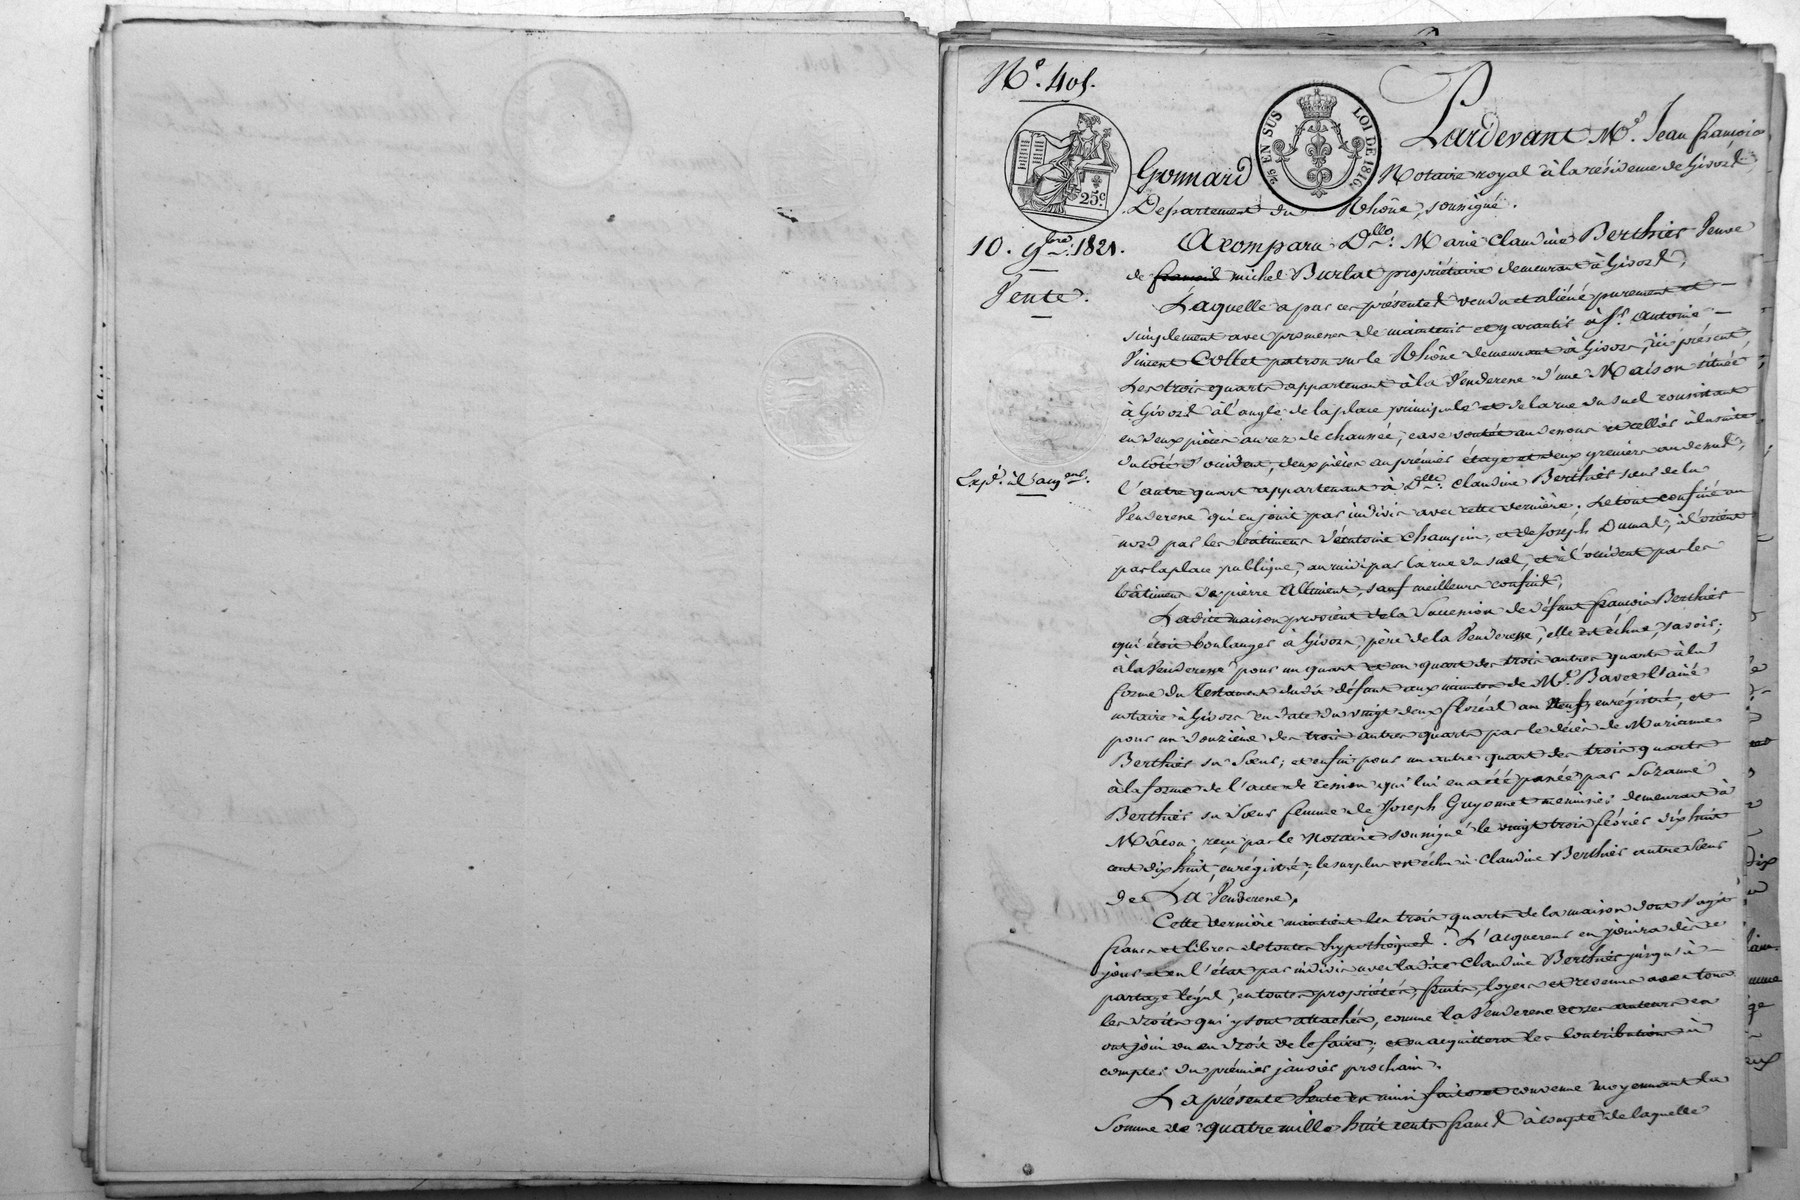 N.° 405.
25 EN SUS LOI DE 1816.
25 c
10. 9bre. 1821.
Vente.
Exp.on à l'acq.eur.
Pardevant M.e Jean françois
Gonnard Notaire royal à la résidence de Givors,
Département du Rhône, soussigné.
A comparu D.lle Marie Claudine Berthier Veuve
de françois michel Burlat propriétaire demeurant à Givors,
Laquelle a par ces présentes vendu et aliéné purement et
simplement avec promesse de maintenir et garantir à S.r Antoine
Vincent Collet patron sur le Rhône demeurant à Givors, ici présent,
Les trois quarts appartenant à la Venderesse d'une Maison située
à Givors à l'angle de la place principale et de la rue du Suel consistant
en deux pièces au rez de chaussée, cave voutée au dessous et celliés à la suite
du côté d'occident, deux pièces au prémier étage et deux greniers au dessus,
l'autre quart appartenant à D.lle Claudine Berthier sœur de la
Venderesse qui en jouit par indivis avec cette dernière. Le tout confiné au
nord par les batimens d'Antoine Champin, et de Joseph Dumas, à l'orient
par la place publique, au midi par la rue du suel, et à l'occident par les
bâtimens de pierre Alliment, sauf meilleurs confins;
Ladite maison provient de la Succession de défunt françois Berthier
qui étoit boulanger à Givors, père de la Venderesse, elle est échue, savoir;
à la Venderesse pour un quart et un quart des trois autres quarts à la
forme du Testament dudit défunt aux minutes de M.e Bavet l'ainé
notaire à Givors en date du vingt deux floréal an neuf, enrégistré, et
pour un douzième des trois autres quarts par le décès de Marianne
Berthier sa Sœur; et enfin pour un autre quart des trois quarts
à la forme de l'acte de cession qui lui en a été passée par Suzanne
Berthier sa Sœur femme de Joseph Guyonnet menuisier demeurant à
Mâcon, reçu par le Notaire soussigné le vingt trois février dix huit
cent dix huit, enrégistré; le surplus est échu à Claudine Berthier autre Sœur
de La Venderesse.
Cette dernière maintient les trois quarts de la maison dont s'agit
francs et libres de toutes hypothèques. L'acquereur en jouira dès ce
jour et en l'état par indivis avec ladite Claudine Berthier jusqu'à
partage légal, en toutes propriétés, fruits, loyers et revenus avec tous
les droits qui y sont attachés, comme la Venderesse et ses auteurs en
ont joui ou eu droit de le faire; et en acquittera les contributions à
compter du prémier janvier prochain.
La présente Vente est ainsi faite et convenue moyennant la
Somme de quatre mille huit cents francs à compte de laquelle